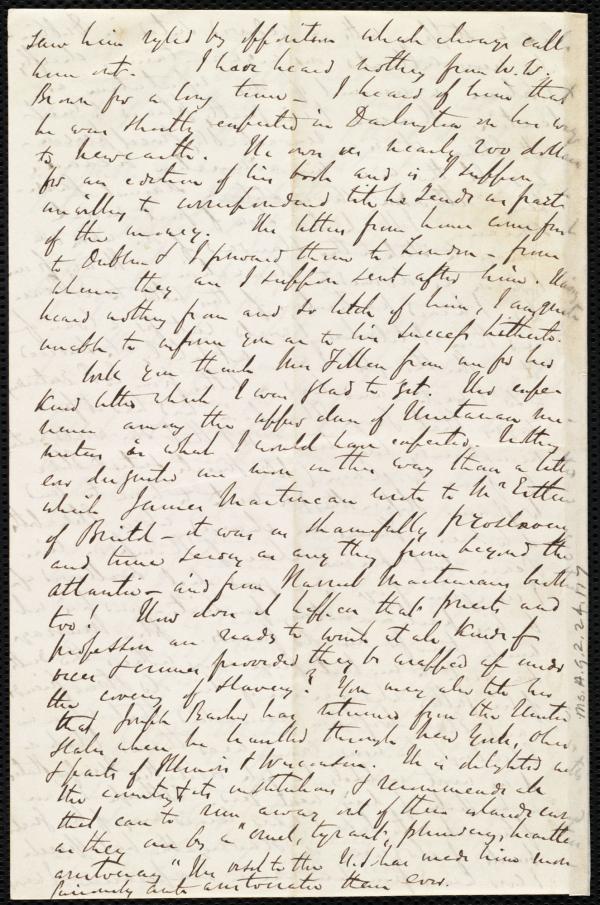 him out. I have heard nothing from W. W.
Brown for a long time – I heard of him that
he was shortly expected in Darlington on his way
to Newcastle. He owes us nearly 200 dollars
for an edition of his book and is I suppose
unwilling to correspond till he sends us part
of the money. His letters from home come first
to Dublin & I forward them to London – from
whence they are I suppose sent after him. Having
heard nothing from and so little of him, I am quite
unable to inform you as to his success hitherto.
Will you thank Mrs Follen from me for her
kind letter which I was glad to get. Her expe-
rience among the upper class of Unitarian mi-
nisters is what I would have expected. Nothing
ever disgusted me more in this way than a letter
which James Martineau wrote to Mr Estlin
of Bristol – it was as shamefully proslavery
and time serving as any thing from beyond the
Atlantic – and from Harriet Martineau's brother
too! How does it happen that priests and
professors are ready to wink at all kinds of
vices & crimes provided they be wrapped up under
the covering of slavery? You may also tell her
that Joseph Barker has returned from the United
States where he travelled through New York, Ohio,
& parts of Illinois & Wisconsin. He is delighted with
the country & its institutions, & recommends all
that can to run away out of these islands
as they are by a "cruel, tyrant, plundering, heartless
aristocracy" His visit to the U.S. has made him more
furiously anti aristocratic than ever.
Ms.A.9.2.24.117